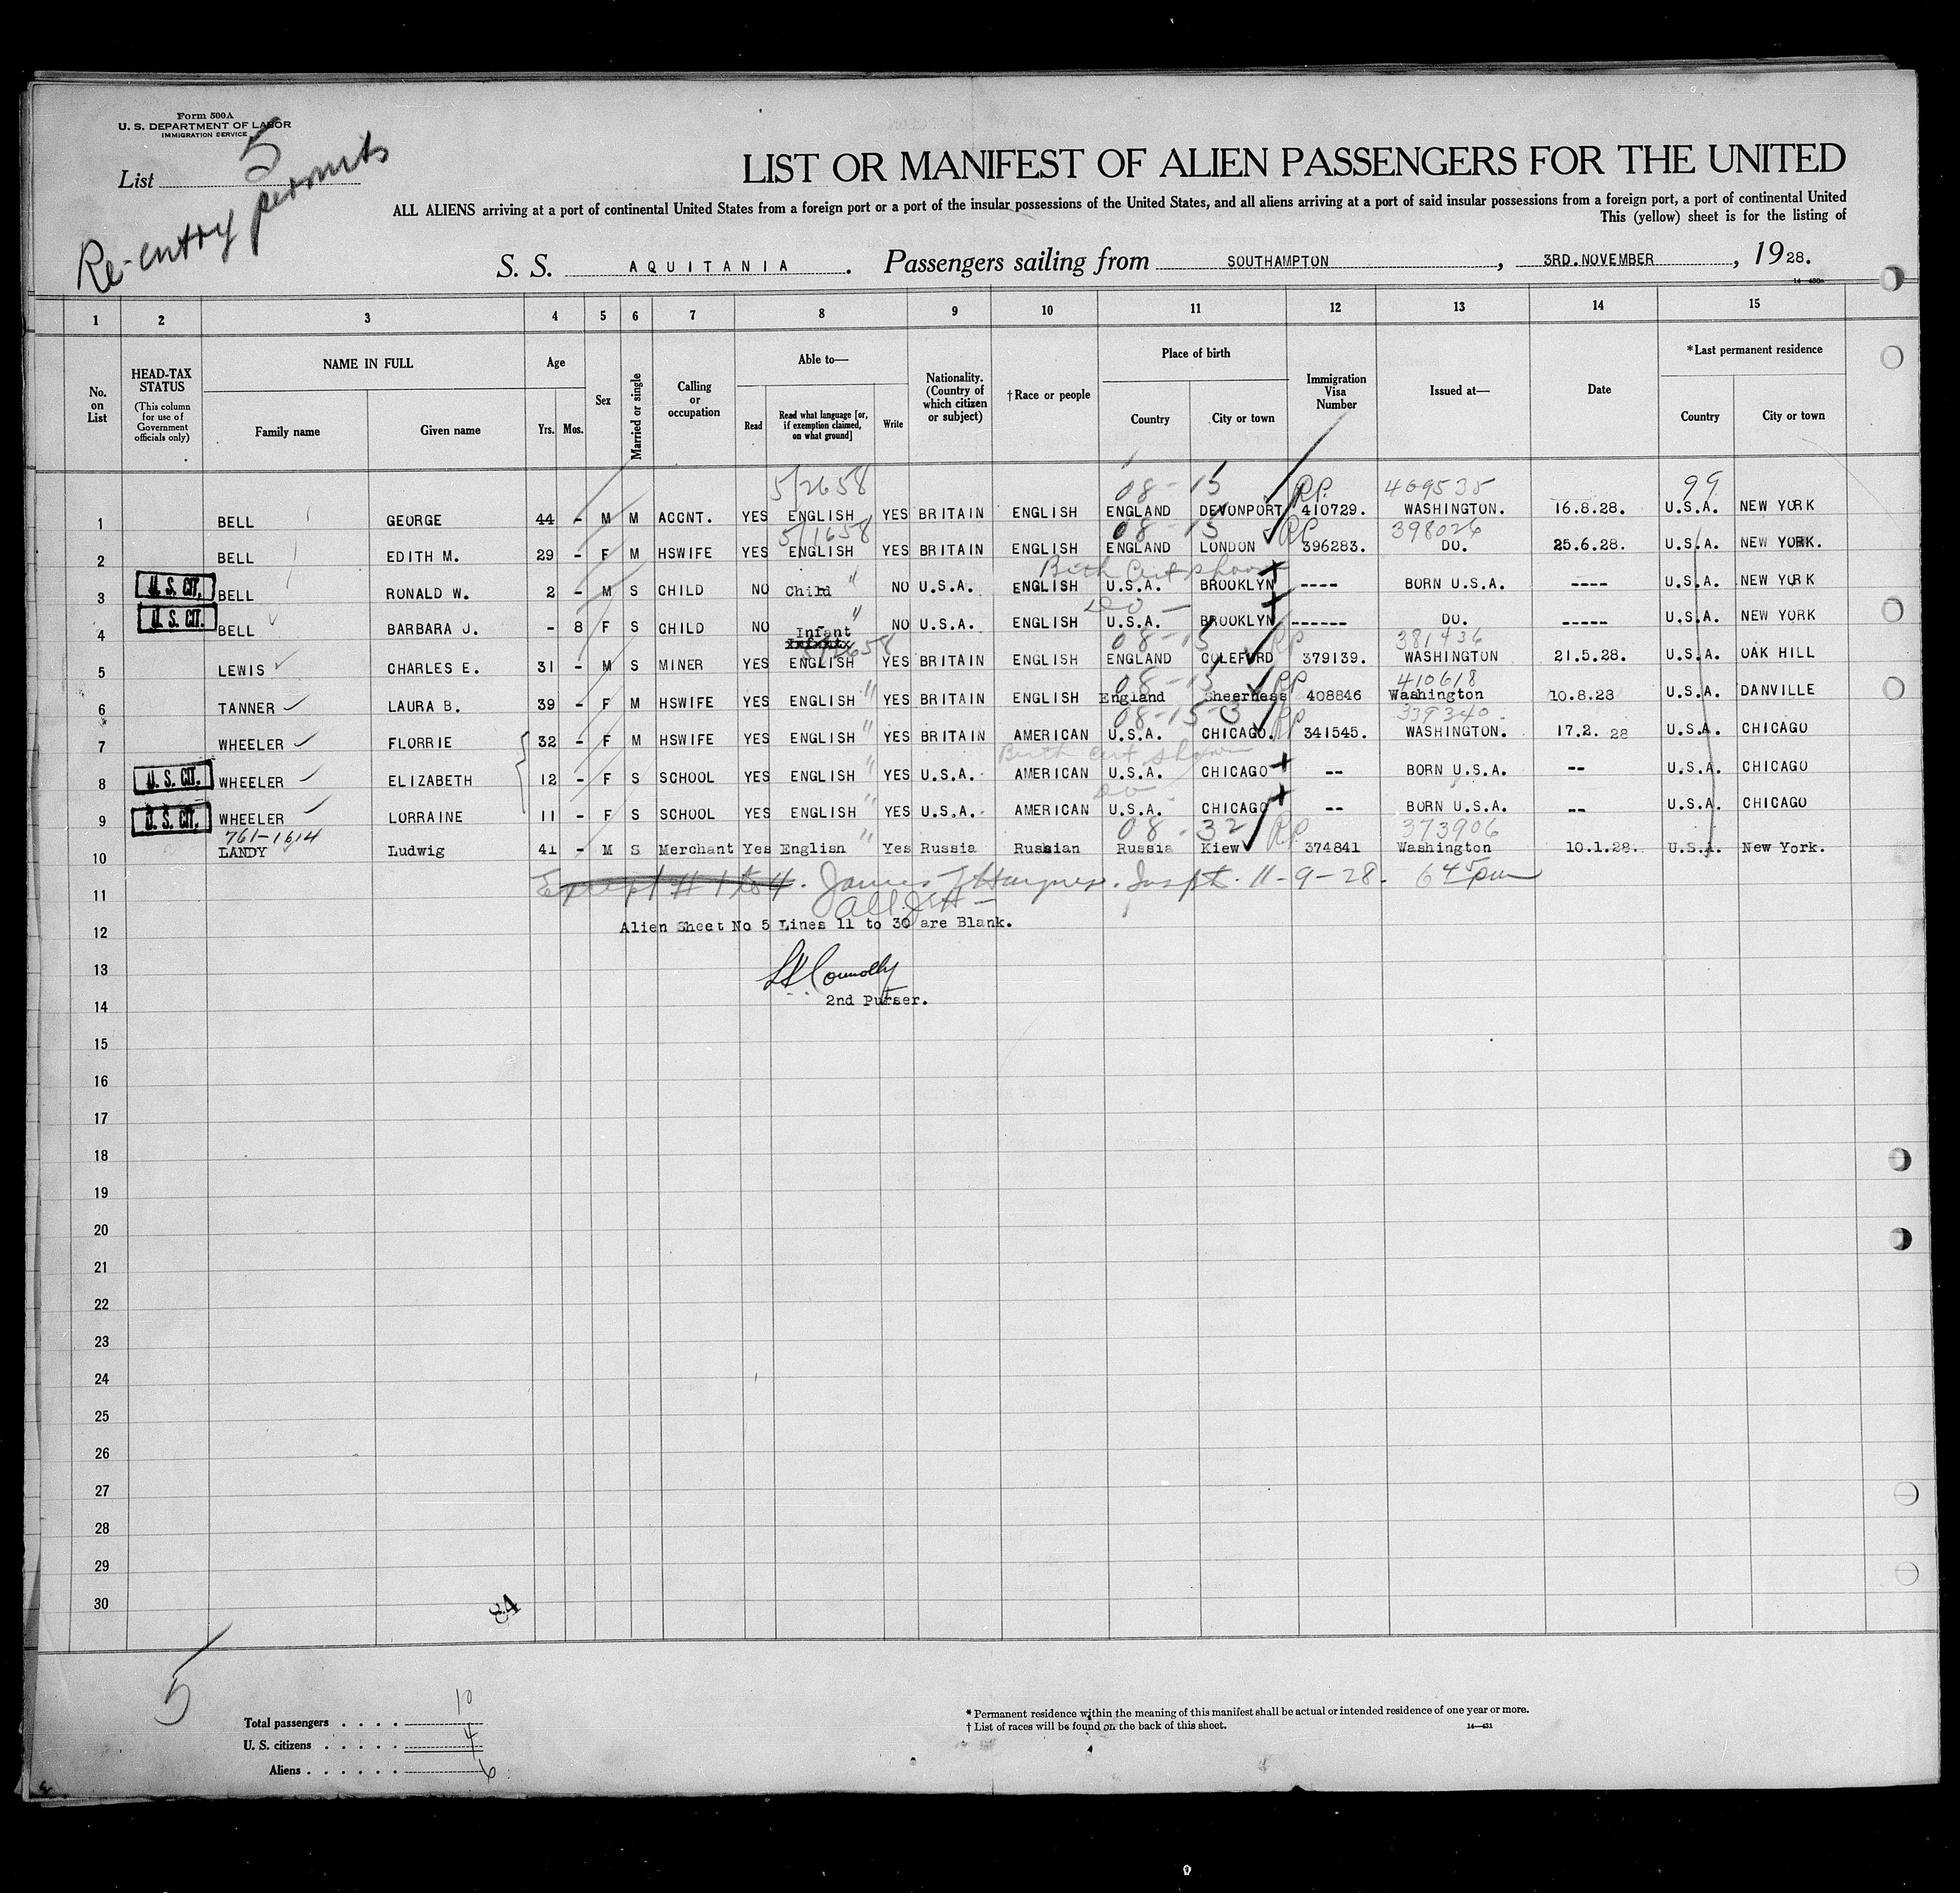 Form 500A
U. S. DEPARTMENT OF LABOR
IMMIGRATION SERVICE
List 5
Re-entry permits
LIST OR MANIFEST OF ALIEN PASSENGERS FOR THE UNITED
ALL ALIENS arriving at a port of continental United States from a foreign port or a port of the insular possessions of the United States, and all aliens arriving at a port of said insular possessions from a foreign port, a port of continental United
This (yellow) sheet is for the listing of
S. S. AQUITANIA. Passengers sailing from SOUTHAMPTON, 3RD. NOVEMBER, 1928.
14—430a
1 2 3 4 5 6 7 8 9 10 11 12 13 14 15
No. on List HEAD-TAX STATUS (This column for use of Government officials only) NAME IN FULL Family name Given name Age Yrs. Mos. Sex Married or single Calling or occupation Able to— Read Read what language [or, if exemption claimed, on what ground] Write Nationality. (Country of which citizen or subject) †Race or people Place of birth Country City or town Immigration Visa Number Issued at— Date *Last permanent residence Country City or town
5/2658 08-15 RP. 469535 99
1 BELL GEORGE 44 - M M ACCNT. YES ENGLISH YES BRITAIN ENGLISH ENGLAND DEVONPORT 410729. WASHINGTON. 16.8.28. U.S.A. NEW YORK
5/1658 08-15 RP 398026
2 BELL EDITH M. 29 - F M HSWIFE YES ENGLISH YES BRITAIN ENGLISH ENGLAND LONDON 396283. DO. 25.6.28. U.S.A. NEW YORK.
Birth Cert shown
3 U. S. CIT. BELL RONALD W. 2 - M S CHILD NO Child " NO U.S.A. ENGLISH U.S.A. BROOKLYN ---- BORN U.S.A. ---- U.S.A. NEW YORK
do —
4 U. S. CIT. BELL BARBARA J. - 8 F S CHILD NO Infant " NO U.S.A. ENGLISH U.S.A. BROOKLYN ------ DO. ----- U.S.A. NEW YORK
5/2658 08-15 RP 381436
5 LEWIS CHARLES E. 31 - M S MINER YES ENGLISH YES BRITAIN ENGLISH ENGLAND COLEFORD 379139. WASHINGTON 21.5.28. U.S.A. OAK HILL
08-15 RP 410618
6 TANNER LAURA B. 39 - F M HSWIFE YES ENGLISH " YES BRITAIN ENGLISH England Sheerness 408846 Washington 10.8.28 U.S.A. DANVILLE
08-15-3 RP 339340.
7 WHEELER FLORRIE 32 - F M HSWIFE YES ENGLISH " YES BRITAIN AMERICAN U.S.A. CHICAGO. 341545. WASHINGTON. 17.2. 28 U.S.A. CHICAGO
Birth cert shown
8 U. S. CIT. WHEELER ELIZABETH 12 - F S SCHOOL YES ENGLISH " YES U.S.A. AMERICAN U.S.A. CHICAGO -- BORN U.S.A. -- U.S.A. CHICAGO
do
9 U. S. CIT. WHEELER LORRAINE 11 - F S SCHOOL YES ENGLISH " YES U.S.A. AMERICAN U.S.A. CHICAGO -- BORN U.S.A. -- U.S.A. CHICAGO
761-1614 08-32 RP. 373906
10 LANDY Ludwig 41 - M S Merchant Yes English " Yes Russia Russian Russia Kiew 374841 Washington 10.1.28. U.S.A. New York.
11 Except # 1 to 4. James J Haynes. Inspt. 11-9-28. 6 45 pm
all JJH —
12 Alien Sheet No 5 Lines 11 to 30 are Blank.
13 Connolly
14 2nd Purser.
15
16
17
18
19
20
21
22
23
24
25
26
27
28
29
30
84
5
Total passengers . . . . 10
U. S. citizens . . . . . 4
Aliens . . . . . . 6
* Permanent residence within the meaning of this manifest shall be actual or intended residence of one year or more.
† List of races will be found on the back of this sheet.
14—431